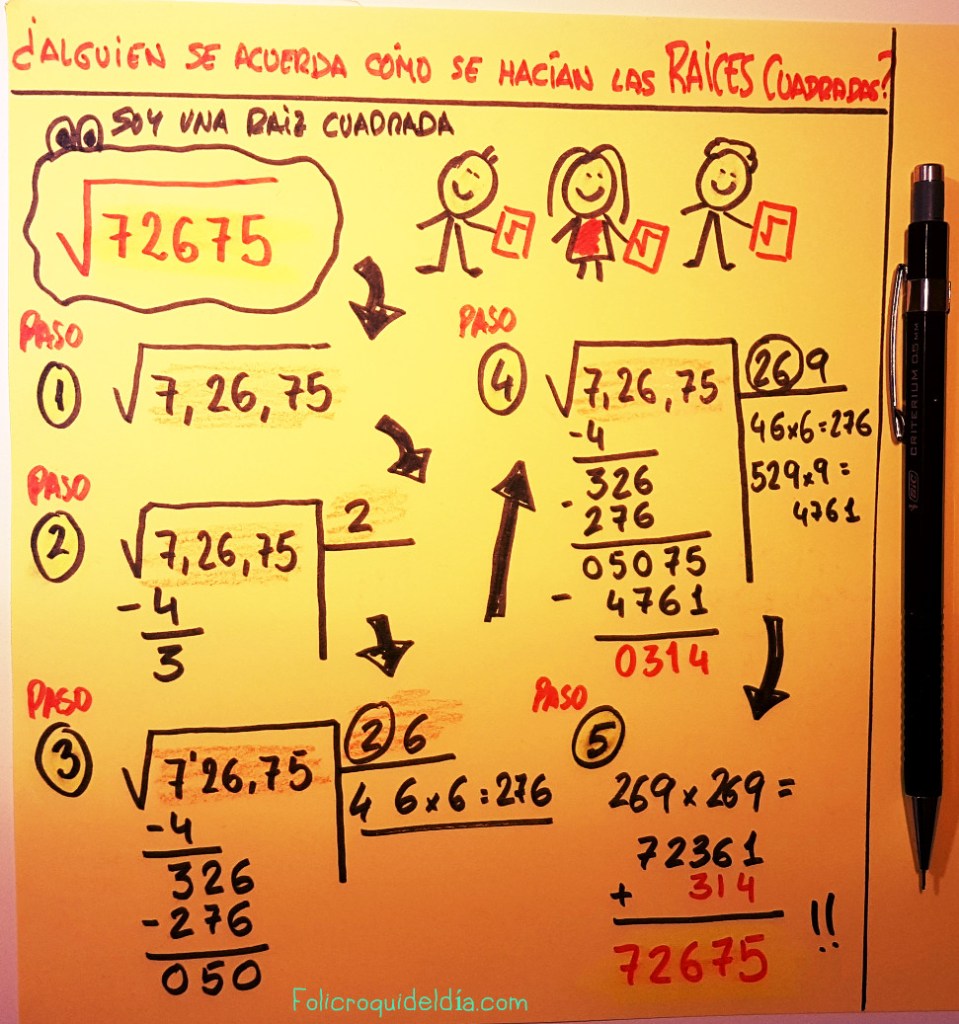 ¿ALGUIEN SE ACUERDA CÓMO SE HACÍAN LAS RAÍCES CUADRADAS?
SOY UNA RAIZ CUADRADA
√72675
PASO
1
√7,26,75
PASO
2
√7,26,75 2
-4
3
PASO
3
√7'26,75 26
46x6=276
-4
326
-276
050
PASO
4
√7,26,75 269
46x6=276
529x9=
4761
-4
326
-276
05075
- 4761
0314
PASO
5
269x269=
72361
+ 314
72675 !!
Folicroquideldía.com
BIC CRITERIUM 0.5 mm